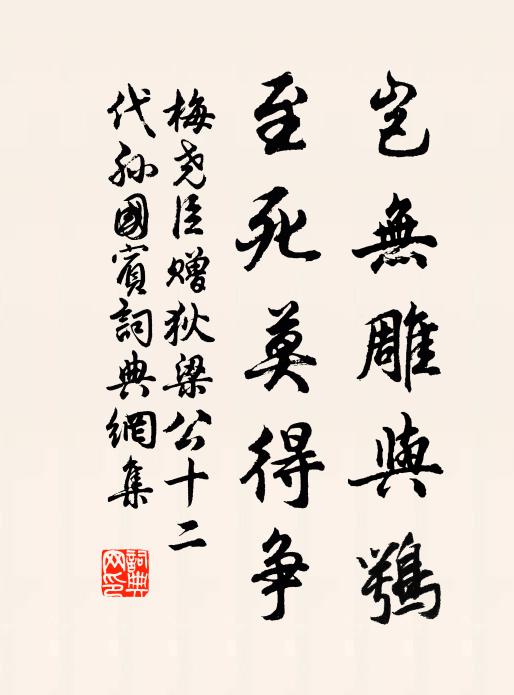 豈無雕與鶚
至死莫得争
梅堯臣贈狄梁公十二
代孫國賓詞典網集
詞典
网印